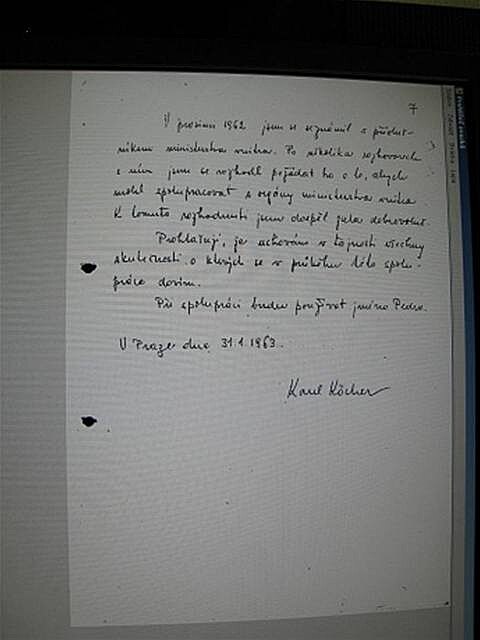 7
V prosinci 1962 jsem se seznámil s přísluš-
níkem ministerstva vnitra. Po několika rozhovorech
s ním jsem se rozhodl požádat ho o to, abych
mohl spolupracovat s orgány ministerstva vnitra
K tomuto rozhodnutí jsem dospěl zcela dobrovolně.
Prohlašuji, že uchovám v tajnosti všechny
skutečnosti, o kterých se v průběhu této spolu-
práce dovím.
Při spolupráci budu používat jména Pedro.
V Praze dne 31.1.1963.
Karel Köcher